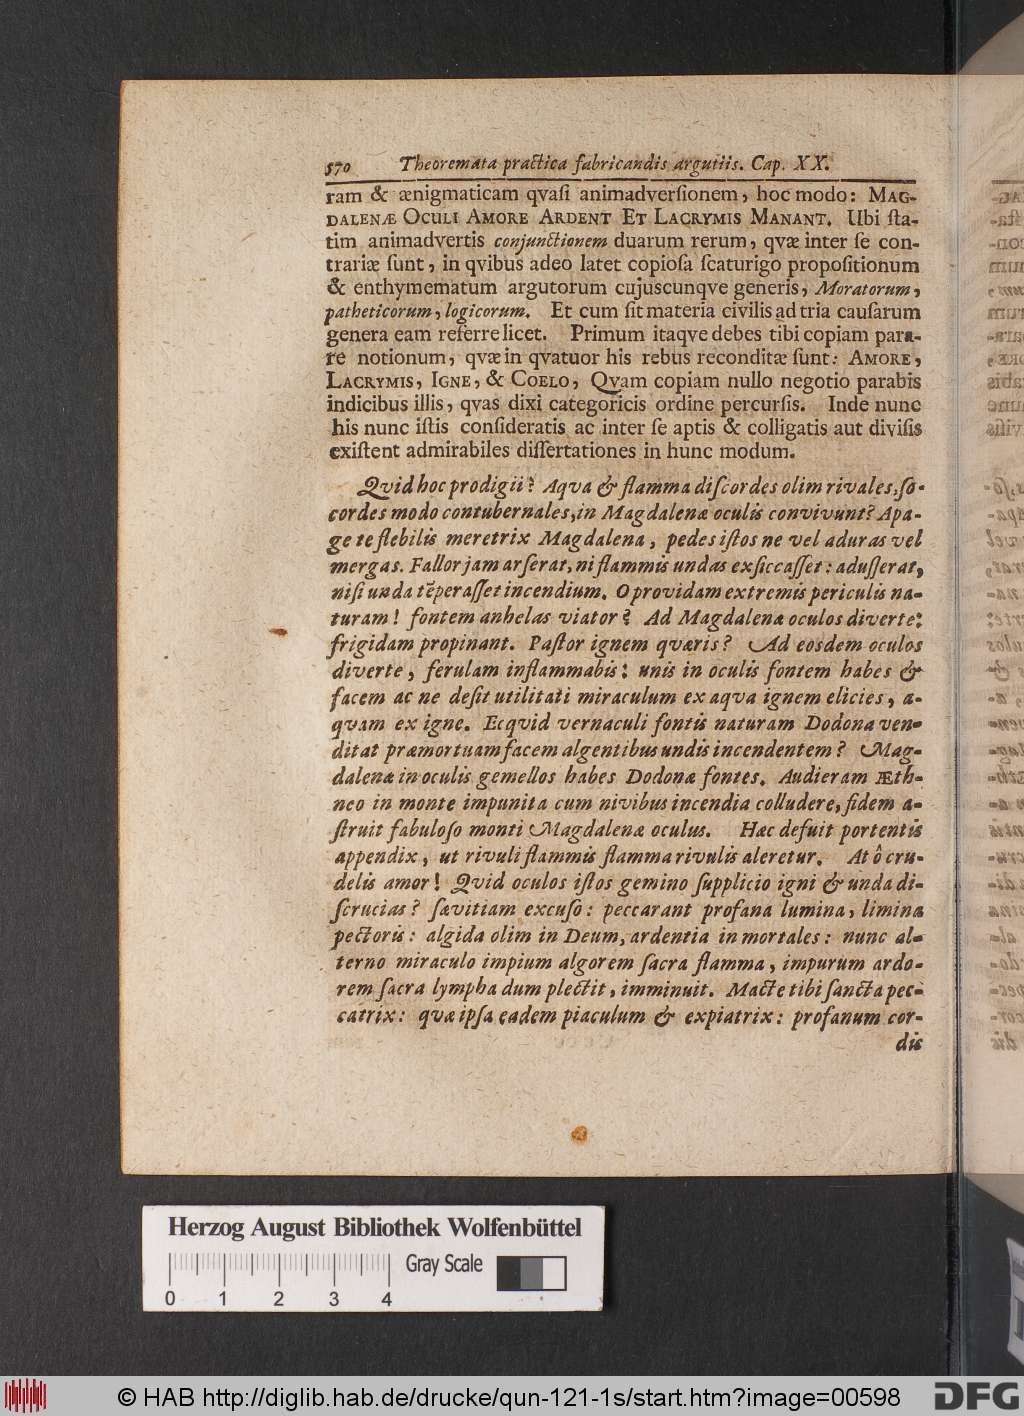 570 Theoremata practica fabricandis argutiis. Cap. XX.
ram & ænigmaticam qvaſi animadverſionem, hoc modo: MAG-
DALENÆ OCULI AMORE ARDENT ET LACRYMIS MANANT. Ubi ſta-
tim animadvertis conjunctionem duarum rerum, qvæ inter ſe con-
trariæ ſunt, in qvibus adeo latet copioſa ſcaturigo propoſitionum
& enthymematum argutorum cujuscunqve generis, Moratorum,
patheticorum, logicorum. Et cum ſit materia civilis ad tria cauſarum
genera eam referre licet. Primum itaqve debes tibi copiam para-
re notionum, qvæ in qvatuor his rebus reconditæ ſunt: AMORE,
LACRYMIS, IGNE, & COELO, Qvam copiam nullo negotio parabis
indicibus illis, qvas dixi categoricis ordine percurſis. Inde nunc
his nunc iſtis conſideratis ac inter ſe aptis & colligatis aut diviſis
exiſtent admirabiles diſſertationes in hunc modum.
Qvid hoc prodigii? Aqva & flamma diſcordes olim rivales, ſo-
cordes modo contubernales, in Magdalenæ oculis convivunt? Apa-
ge te flebilis meretrix Magdalena, pedes iſtos ne vel aduras vel
mergas. Fallor jam arſerat, ni flammis undas exſiccaſſet: aduſſerat,
niſi unda tēperaſſet incendium. O providam extremis periculis na-
turam! fontem anhelas viator? Ad Magdalenæ oculos diverte:
frigidam propinant. Paſtor ignem qværis? Ad eosdem oculos
diverte, ferulam inflammabis: unis in oculis fontem habes &
facem ac ne deſit utilitati miraculum ex aqva ignem elicies, a-
qvam ex igne. Ecqvid vernaculi fontis naturam Dodona ven-
ditat præmortuam facem algentibus undis incendentem? Mag-
dalena in oculis gemellos habes Dodonæ fontes. Audieram Æth-
neo in monte impunita cum nivibus incendia colludere, fidem a-
ſtruit fabuloſo monti Magdalenæ oculus. Hæc defuit portentis
appendix, ut rivuli flammis flamma rivulis aleretur. At ô cru-
delis amor! Qvid oculos iſtos gemino ſupplicio igni & unda di-
ſcrucias? ſævitiam excuſo: peccarant profana lumina, limina
pectoris: algida olim in Deum, ardentia in mortales: nunc al-
terno miraculo impium algorem ſacra flamma, impurum ardo-
rem ſacra lympha dum plectit, imminuit. Macte tibi ſancta pec-
catrix: qvæ ipſa eadem piaculum & expiatrix: profanum cor-
dis
Herzog August Bibliothek Wolfenbüttel
Gray Scale
0 1 2 3 4
© HAB http://diglib.hab.de/drucke/qun-121-1s/start.htm?image=00598
DFG